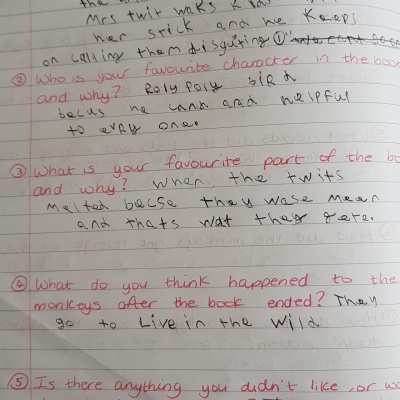 the
Mrs twit waks
her stick and he keeps
on calling them disguting ①
② Who is your favourite character in the boo
and why? Roly Poly bird
becus he cann and helpful
to evry one.
③ What is your favourite part of the bo
and why? when the twits
melted becse they wase mean
and thats wat they gete.
④ What do you think happened to the
monkeys after the book ended? They
go to Live in the wild
⑤ Is there anything you didn't like, or wo